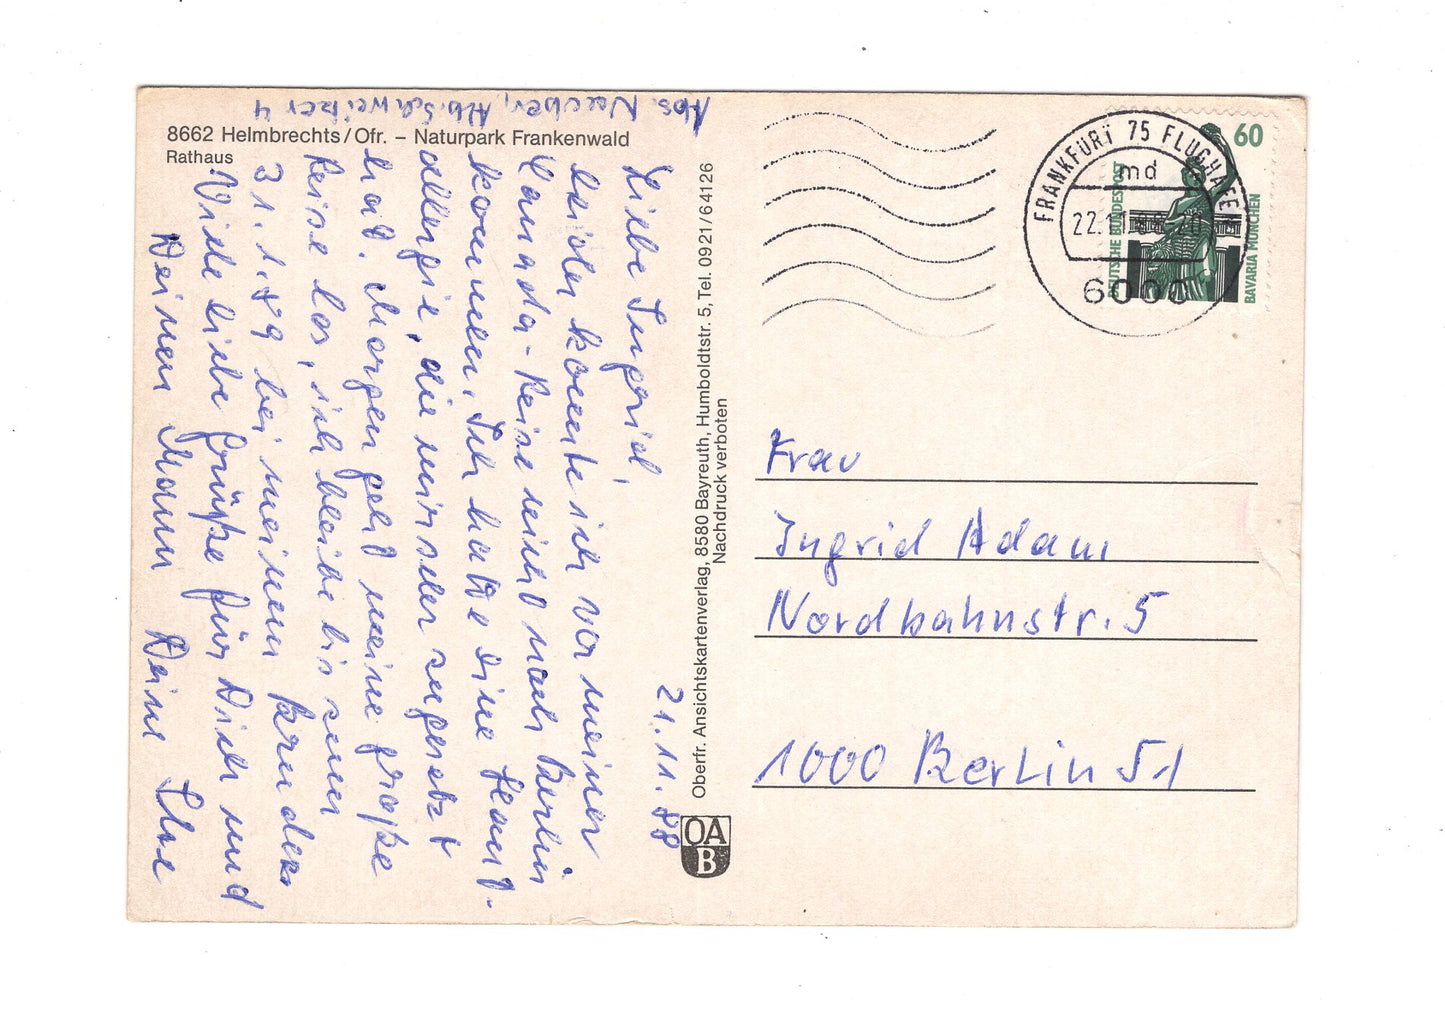 8662 Helmbrechts/Ofr. – Naturpark Frankenwald
Rathaus
4
21.11.88
Liebe Ingrid,
leider konnte ich vor meiner
Canada-Reise nicht nach Berlin
kommen. Ich hatte eine Haut-
allergie, die mir sehr zugesetzt
hat. Morgen geht meine große
Reise los, ich bleibe bis zum
31.1.89 bei meinem Bruder.
Viele liebe Grüße für Dich und
Deinen Mann Deine Ilse
Oberfr. Ansichtskartenverlag, 8580 Bayreuth, Humboldtstr. 5, Tel. 0921/64126
Nachdruck verboten
OA
B
FRANKFURT 75 FLUGHAFEN
md
22.11
6000
60
DEUTSCHE BUNDESPOST
BAVARIA MÜNCHEN
Frau
Ingrid Adam
Nordbahnstr. 5
1000 Berlin 51